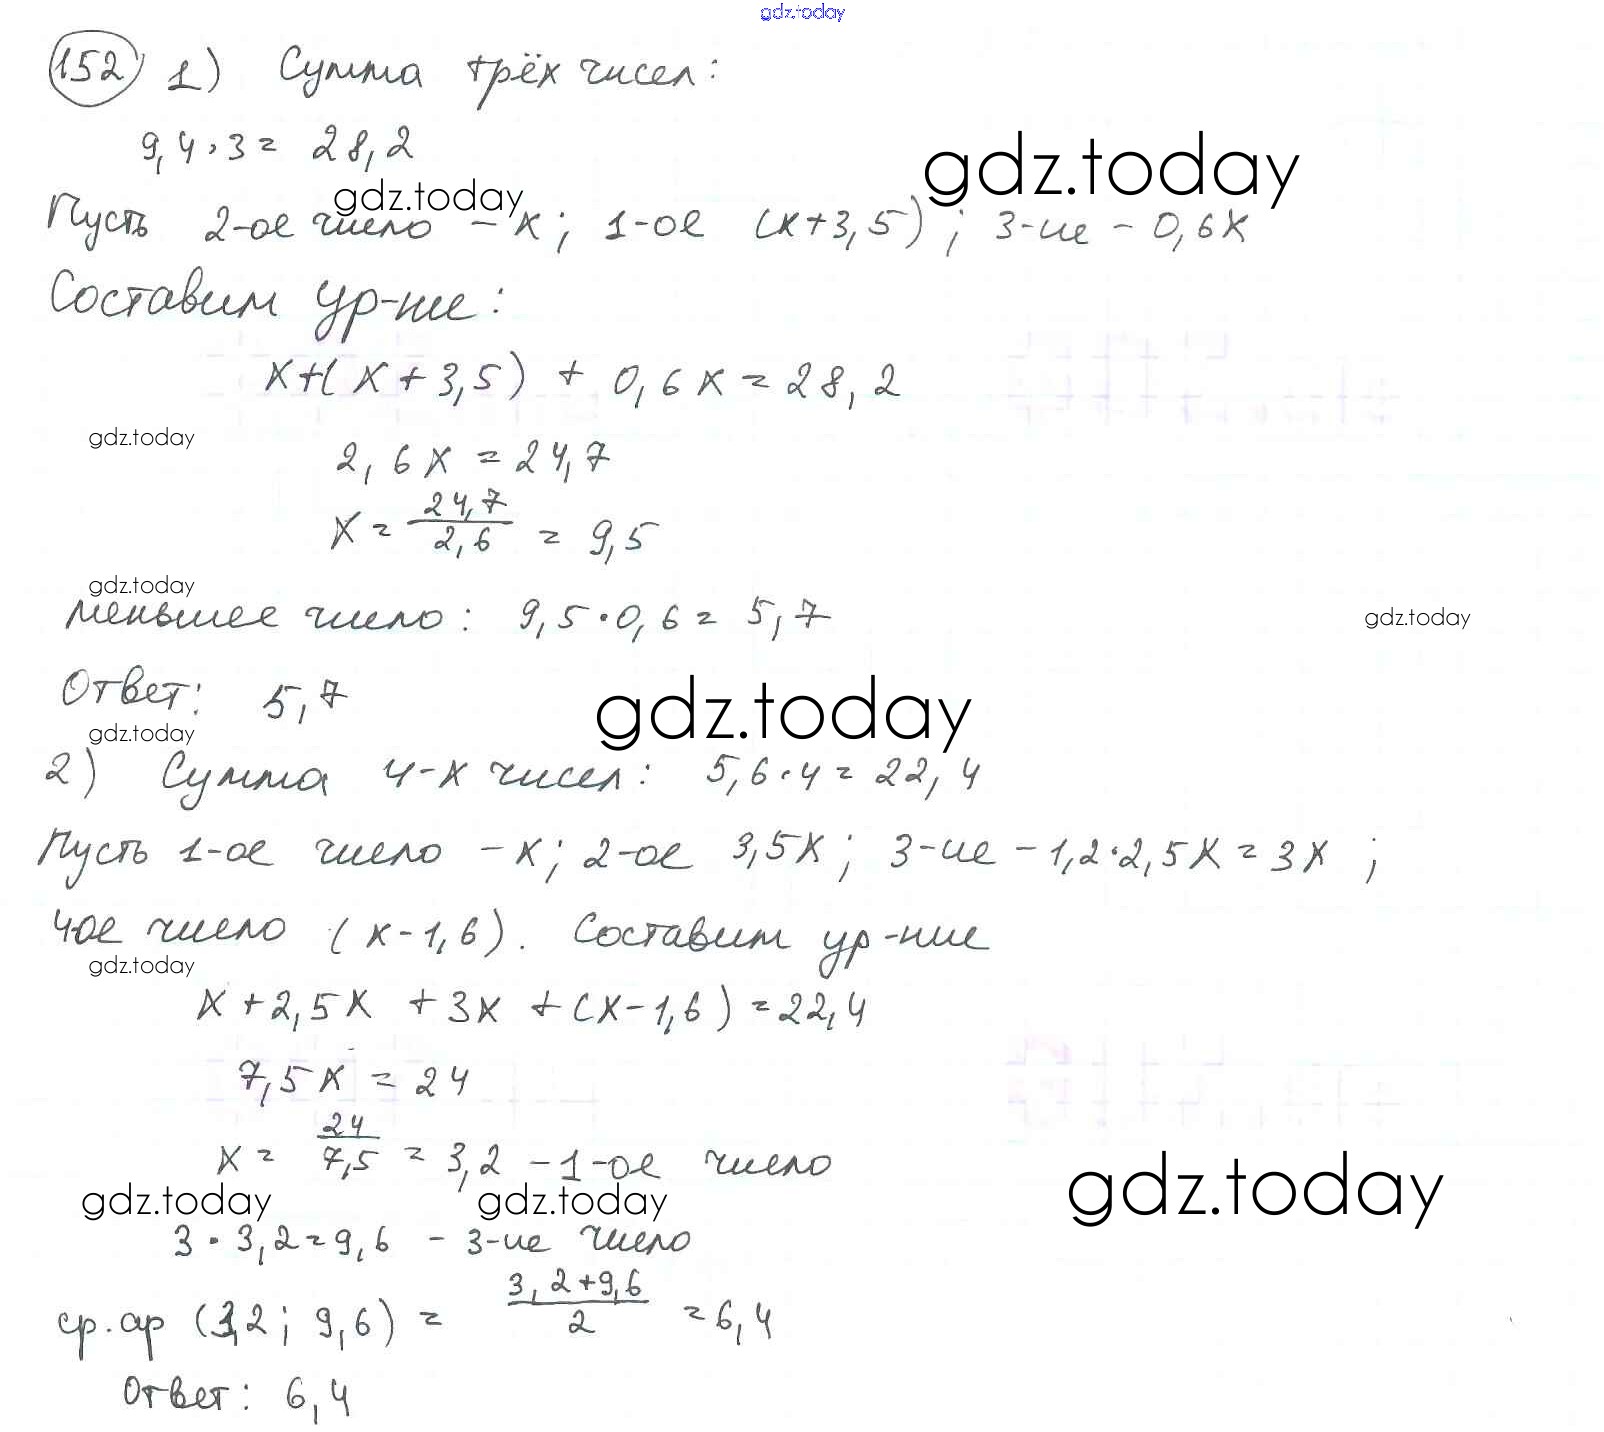 gdz.today
152 1) Сумма трёх чисел:
9,4·3= 28,2
gdz.today
gdz.today
Пусть 2-ое число – x; 1-ое (x+3,5); 3-ие – 0,6x
Составим ур-ние:
x+(x+3,5) + 0,6x = 28,2
gdz.today
2,6x = 24,7
x = 24,7/2,6 = 9,5
gdz.today
меньшее число: 9,5·0,6 = 5,7
gdz.today
Ответ: 5,7
gdz.today
gdz.today
2) Сумма 4-х чисел: 5,6·4 = 22,4
Пусть 1-ое число – x; 2-ое 3,5x; 3-ие – 1,2·2,5x = 3x;
4ое число (x-1,6). Составим ур-ние
gdz.today
x + 2,5x + 3x + (x-1,6) = 22,4
7,5x = 24
x = 24/7,5 = 3,2 – 1-ое число
gdz.today gdz.today gdz.today
3·3,2=9,6 – 3-ие число
ср.ар (3,2; 9,6) = 3,2+9,6/2 = 6,4
Ответ: 6,4